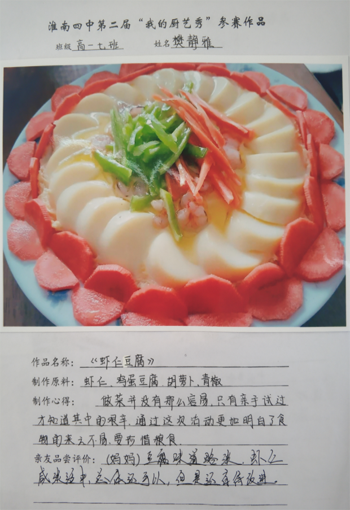 淮南四中第二届“我的厨艺秀”参赛作品
班级 高一七班 姓名 樊静雅
作品名称:《虾仁豆腐》
制作原料: 虾仁 鸡蛋豆腐 胡萝卜 青椒
制作心得: 做菜并没有那么容易,只有亲手试过
才知道其中的艰辛,通过这次活动更加明白了食
物的来之不易,要珍惜粮食
亲友品尝评价: (妈妈) 豆腐味道